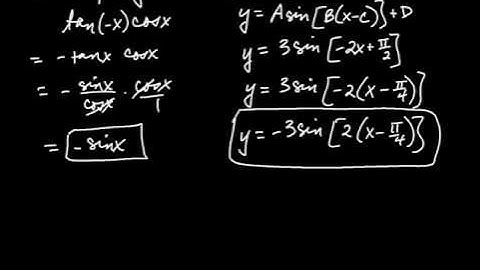 tan(-x) cosx
= -tanx cosx
= - sinx/cosx · cosx/1
= -sinx
y = A sin[B(x-c)]+D
y = 3sin[-2x+π/2]
y = 3sin[-2(x-π/4)]
y = -3sin[2(x-π/4)]